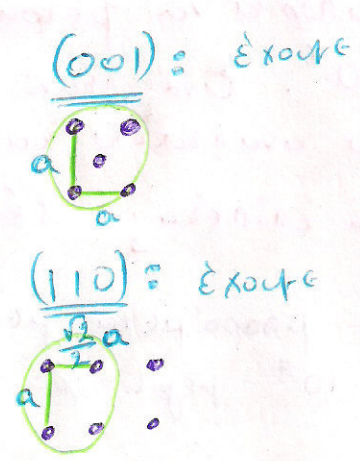 (001): έχουμε
a
a
(110): έχουμε
√2/2 a
a